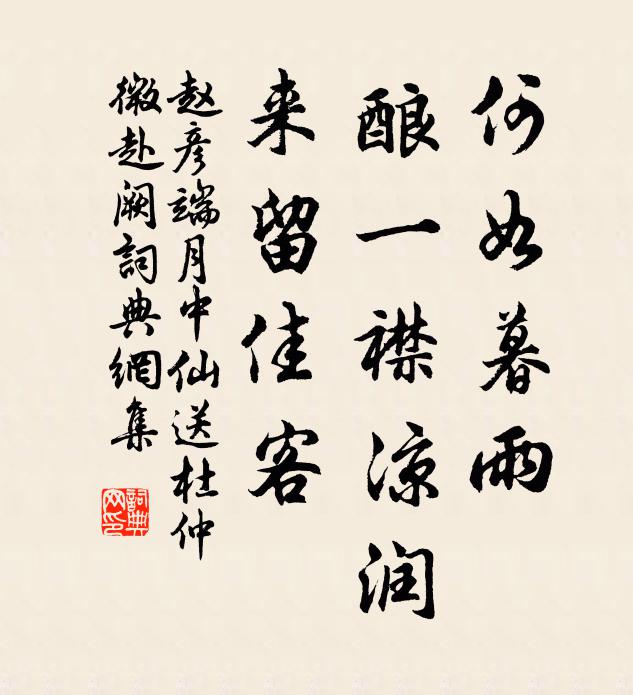 何如暮雨
酿一襟凉润
来留佳客
赵彦端月中仙送杜仲
微赴阙詞典網集
詞典
网印